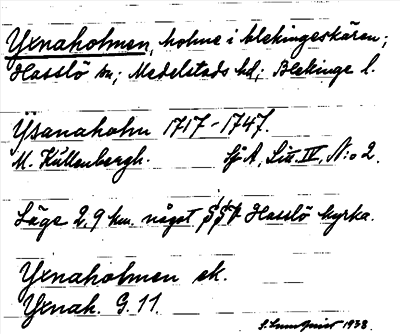 Yxnaholmen, holme i blekingeskären;
Hasslö sn; Medelstads hd; Blekinge l.
Ÿxanaholm 1717-1747.
M. Kullenbergh. Sj A, Litt. IV, N:o 2.
Läge 2,9 km. något Hasslö kyrka.
Yxnaholmen ek.
Yxnah. G. 11.
1938